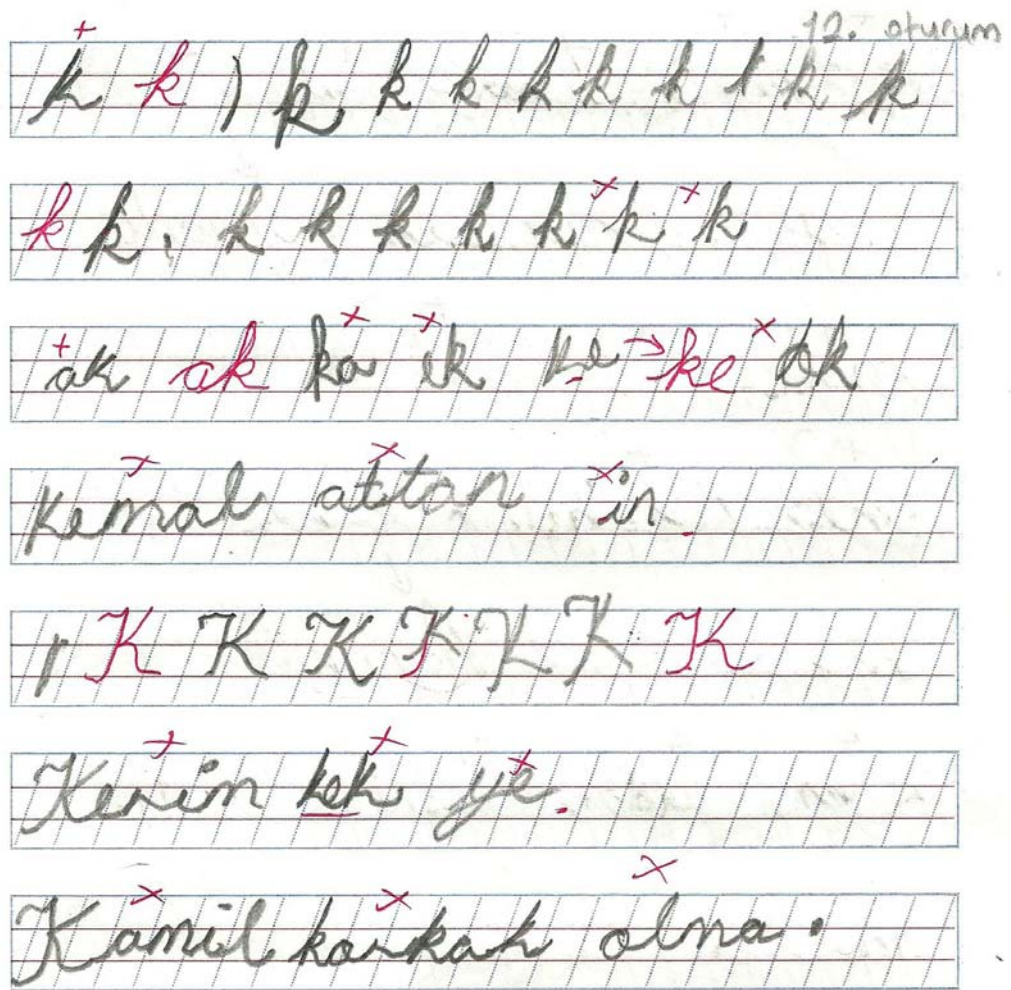 12. oturum
k k ) k k k k k k t k k
k k , k k k k k k k
ak ak ka ik ke ke ok
Kemal attan in.
K K K K K K K
Kerin kek ye.
Kamil karkak olna.